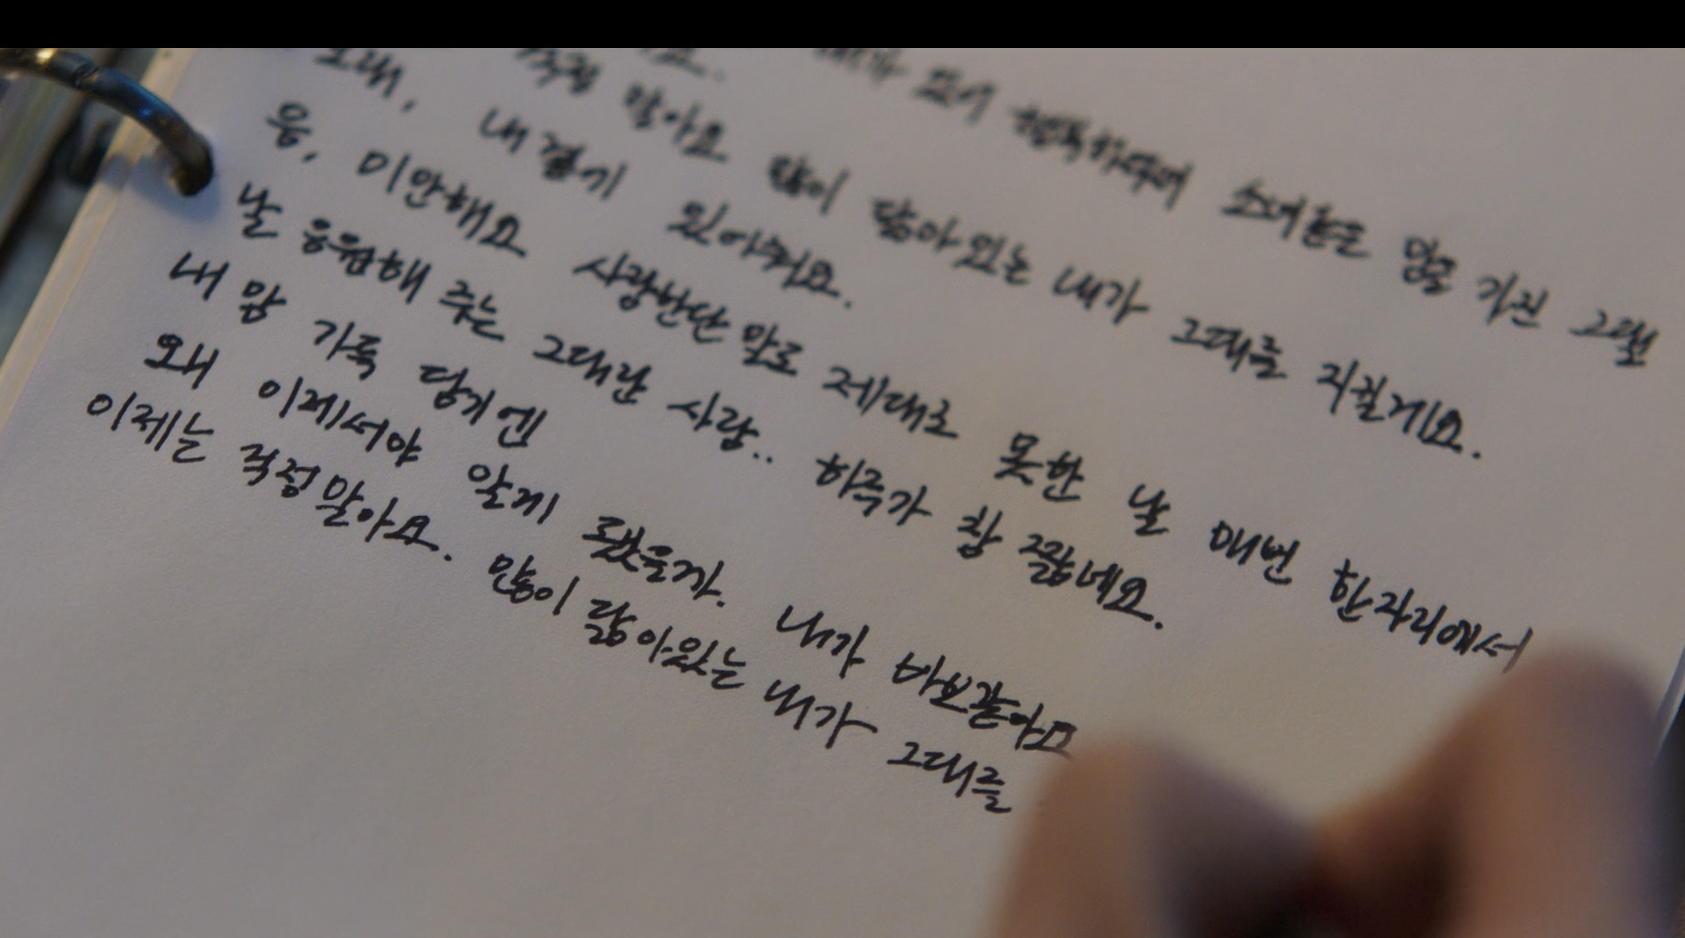 소매 그럴
걱정 말아요 많이 닮아있는 내가 그대를 지킬게요.
그래, 내 곁에 있어줘요.
응, 미안해요 사랑한단 말로 제대로 못한 날 매번 한자리에서
날 응원해 주는 그대란 사람.. 하루가 참 짧네요.
내 맘 가득 담기엔
왜 이제서야 알게 됐을까. 내가 바보같아요
이제는 걱정말아요. 많이 닮아있는 내가 그대를